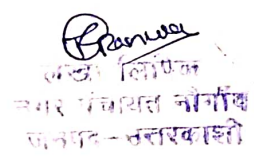 लिपिक
नगर पंचायत नौगाँव
जनपद-उत्तरकाशी